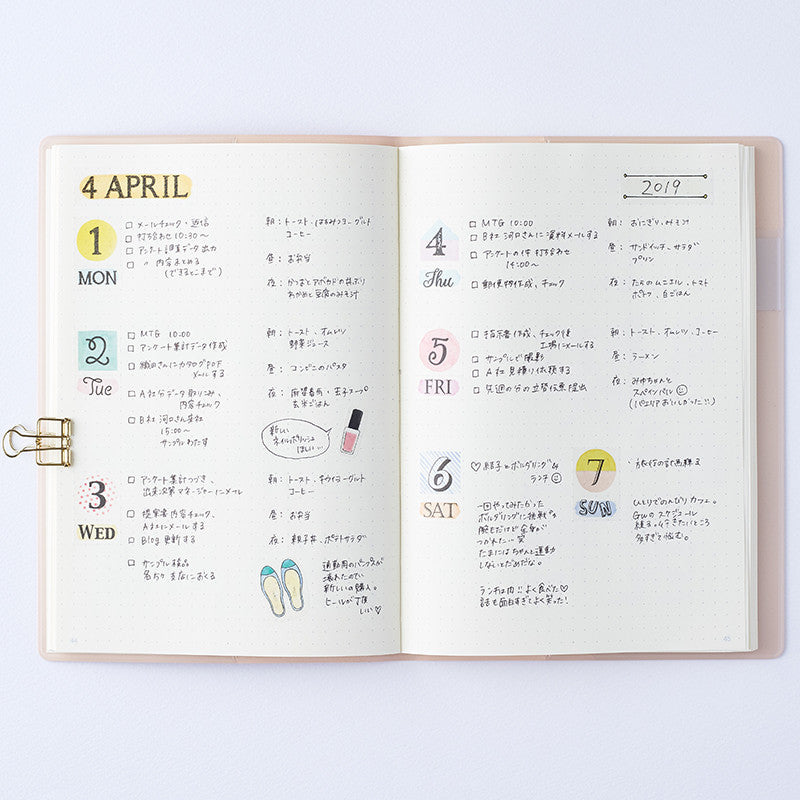 4 APRIL
1
MON
□ メールチェック・返信
□ 打ち合わせ 10:30〜
□ アンケート調査データ出力
□ 〃 内容まとめる
(できるとこまで)
朝：トースト、はちみつヨーグルト
コーヒー
昼：お弁当
夜：かつおとアボカドの丼ぶり
わかめと豆腐のみそ汁
2
Tue
□ MTG 10:00
□ アンケート集計データ作成
□ 織田さんにカタログPDF
メールする
□ A社分データ取りこみ、
内容チェック
□ B社 河口さん来社
15:00〜
サンプルわたす
朝：トースト、オムレツ
野菜ジュース
昼：コンビニのパスタ
夜：麻婆春雨・玉子スープ
玄米ごはん
新しい
ネイルポリッシュ
ほしい…
3
WED
□ アンケート集計つづき、
出来次第マネージャーにメール
□ 提案書内容チェック、
メールする
□ Blog 更新する
□ サンプル検品
名古や支店におくる
朝：トースト・キウイヨーグルト
コーヒー
昼：お弁当
夜：親子丼、ポテトサラダ
通勤用のパンプスが
壊れたので
新しいの購入。
ヒールが丁度
いい♡
44
2019
4
Thu
□ MTG 10:00
□ B社 河口さんに資料メールする
□ アンケートの件 打ち合わせ
14:00〜
□ 郵便物作成、チェック
朝：おにぎり、みそ汁
昼：サンドイッチ、サラダ
プリン
夜：たらのムニエル、トマト
ポテト、白ごはん
5
FRI
□ 指示書作成、チェック後
工場にメールする
□ サンプルで撮影
□ A社見積り依頼する
□ 先週の分の立替伝票提出
朝：トースト、オムレツ、コーヒー
昼：ラーメン
夜：みゆちゃんと
スペインバル
(パエリアおいしかった!!)
6
SAT
♡ 結子とボルダリング &
ランチ
一回やってみたかった
ボルダリングに挑戦!!
腕もだけど全身が
つかれた…笑
たまにはちゃんと運動
しないとだめだな。
ランチは肉!!よく食べた♡
話も面白すぎてよく笑った!
7
SUN
・旅行の計画練る
ひとりでのんびりカフェ。
GWのスケジュール
練る。行きたいところ
多すぎて悩む。
45